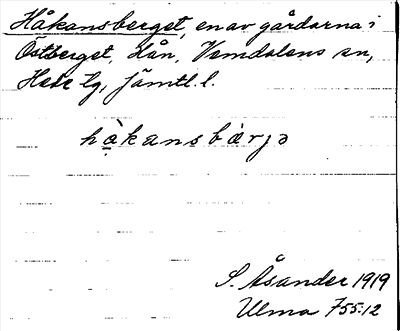 Håkansberget, en av gårdarna i
Östberget, Hån, Vemdalens sn,
Hede tg, Jämtl. l.
hå̀kansbàrjə
S. Åsander 1919
Ulma 755:12